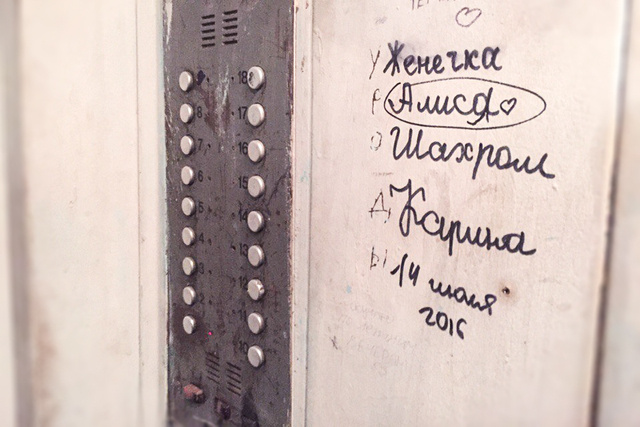 Женечка
Алиса
Шахром
Карина
14 июля
2016
У
Р
О
Д
Ы
18
8 17
7 16
6 15
5 14
4 13
3
2
11
10